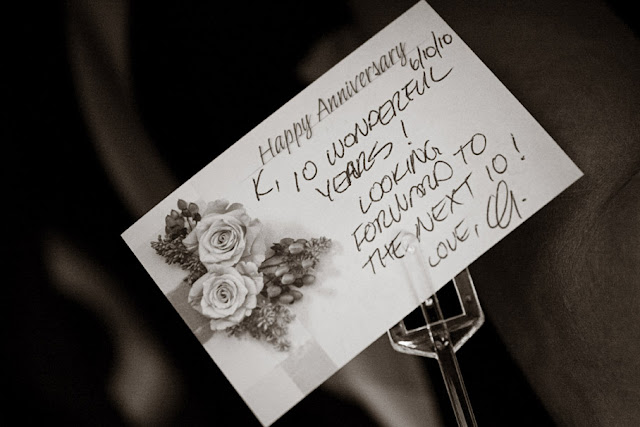 Happy Anniversary
6/10/10
K, 10 WONDERFUL
YEARS!
LOOKING
FORWARD TO
THE NEXT 10!
LOVE,